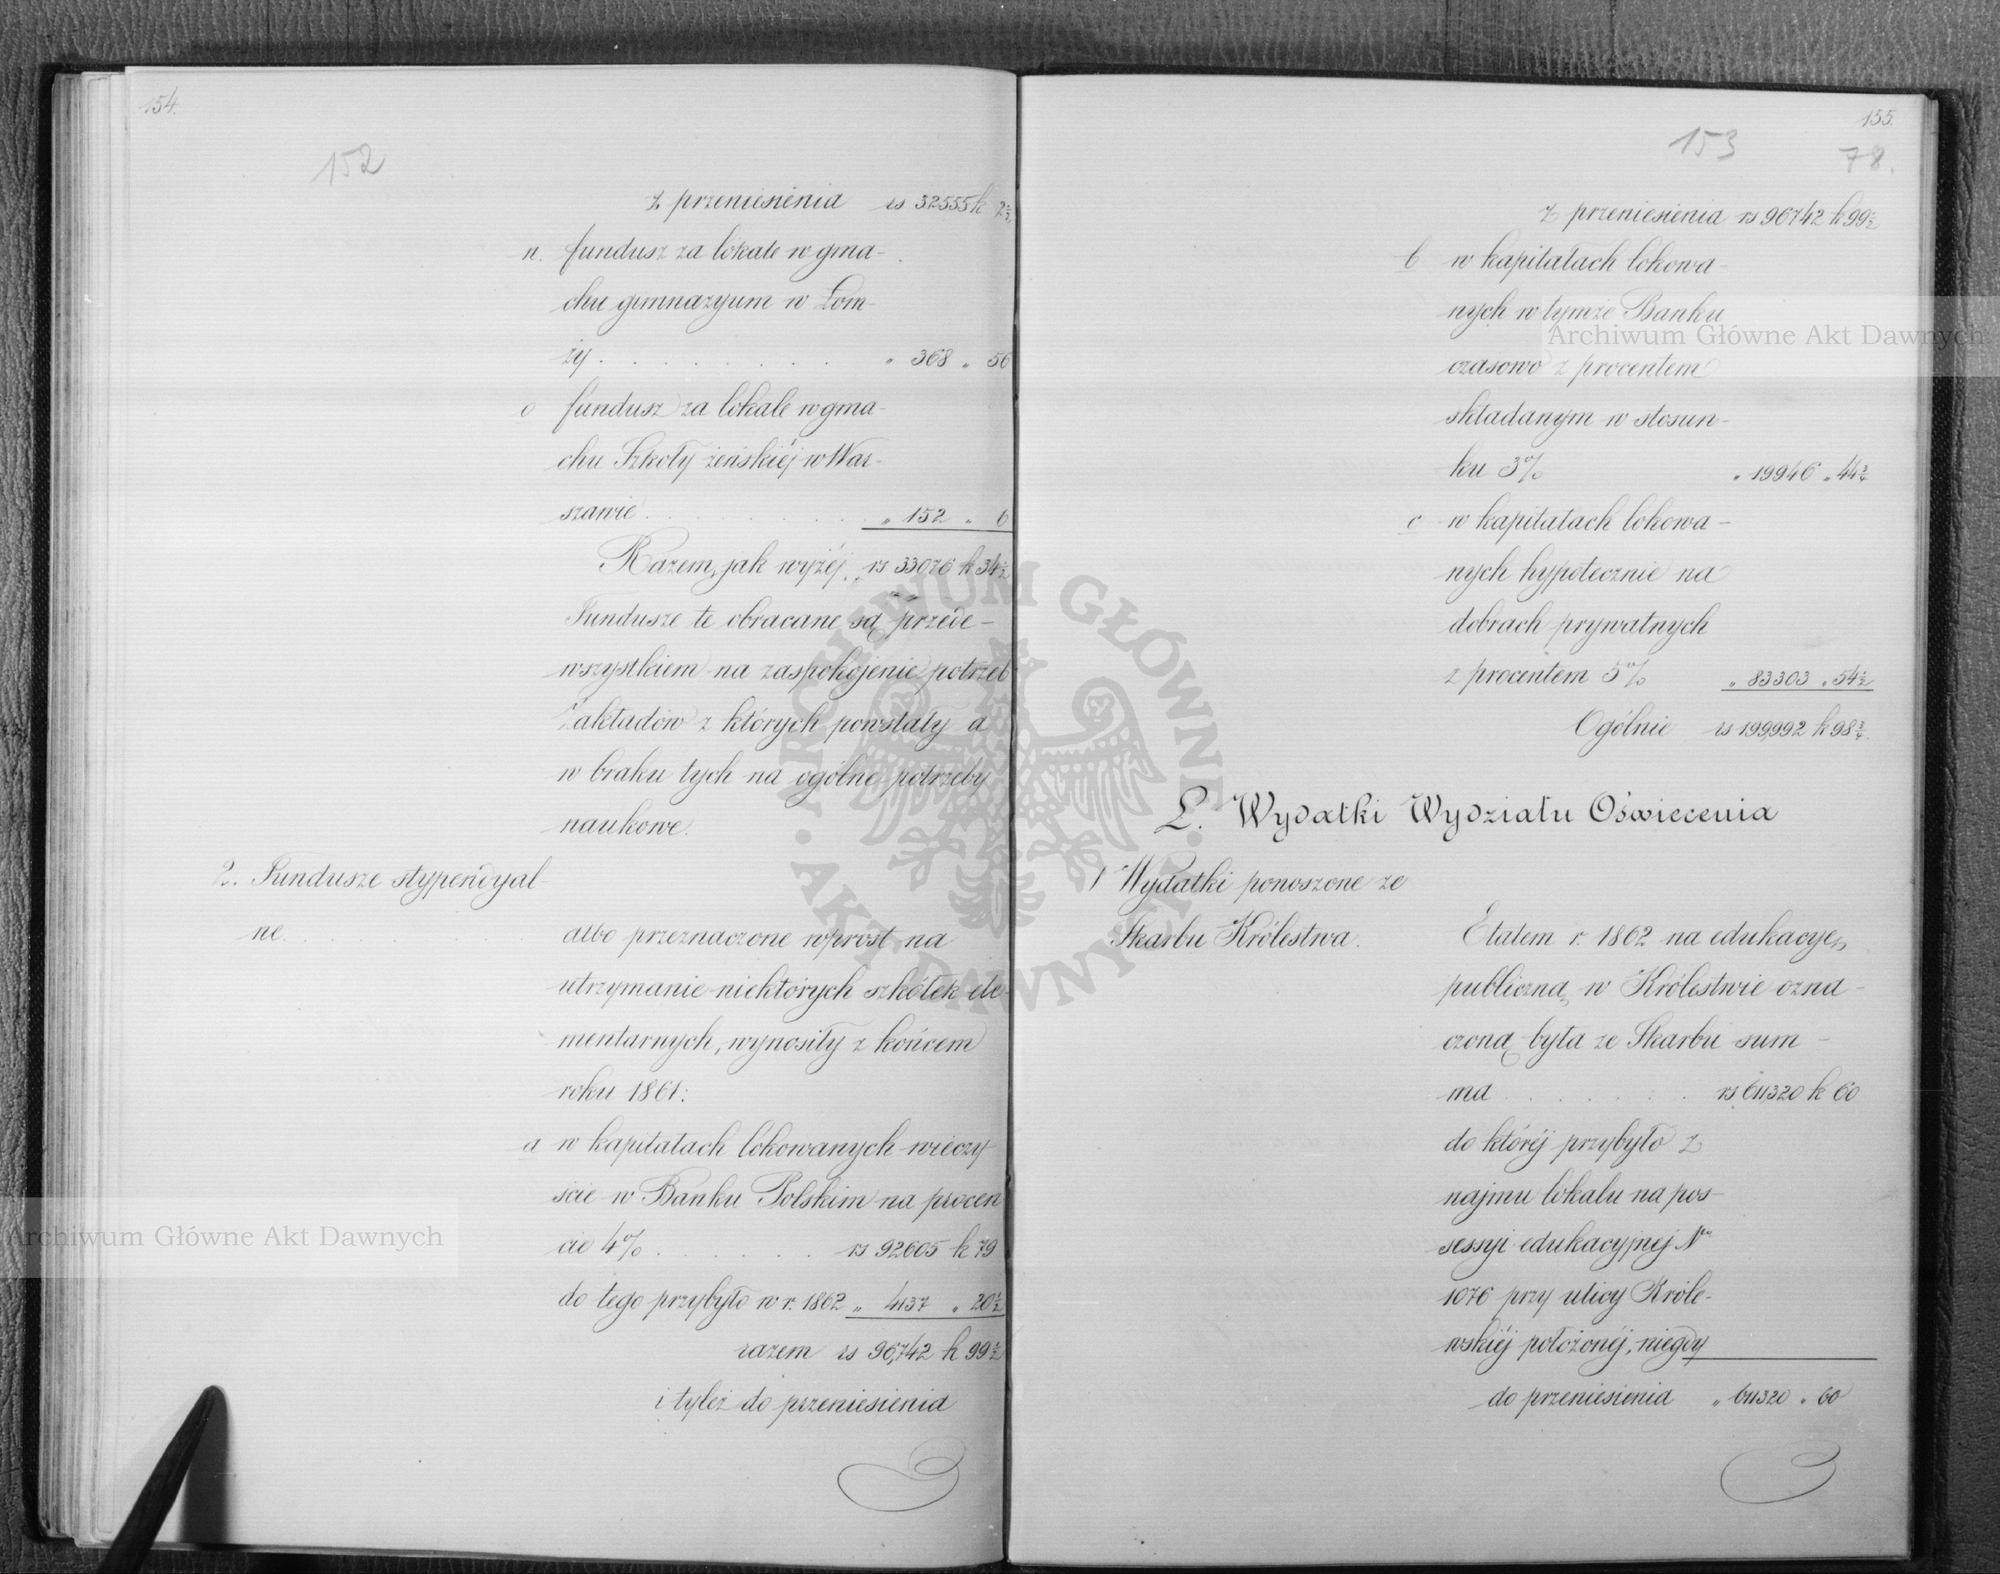 154.
152
z przeniesienia rs 32555 k 2½
n. fundusz za lokale w gma-
chu gimnazyum w Łom-
ży . . . . . . . „ 368 „ 56
o fundusz za lokale w gma-
chu Szkoły żeńskiéj w War-
szawie . . . . . . „ 152 „ 6
Razem, jak wyżéj, rs 33076 k 34½
Fundusze te obracane są przede-
wszystkiem na zaspokojenie potrzeb
Zakładów z których powstały a
w braku tych na ogólne potrzeby
naukowe.
2. Fundusze stypendyal-
ne. . . . . . . albo przeznaczone wprost na
utrzymanie niektórych szkółek ele-
mentarnych, wynosiły z końcem
roku 1861:
a w kapitałach lokowanych wieczy-
ście w Banku Polskim na procen
cie 4% . . . . . . rs 92605 k 79
do tego przybyło w r. 1862 „ 4137 „ 20½
razem rs 96,742 k 99½
i tyleż do przeniesienia
155.
153
78.
z przeniesienia rs 96742 k 99½
b w kapitałach lokowa-
nych w tymże Banku
czasowo z procentem
składanym w stosun-
ku 3% „ 19946 „ 44¾
c w kapitałach lokowa-
nych hypotecznie na
dobrach prywatnych
z procentem 5% „ 83303 „ 54½
Ogólnie rs 199,992 k 98¾
L. Wydatki Wydziału Oświecenia
1 Wydatki ponoszone ze
Skarbu Królestwa. Etatem r. 1862 na edukacyę
publiczną w Królestwie ozna-
czoną była ze Skarbu sum-
ma . . . . . . . rs 611320 k 60
do któréj przybyło z
najmu lokalu na pos-
sessyi edukacyjnej Nro
1076 przy ulicy Króle-
wskiéj położonéj, niegdy
do przeniesienia „ 611320 „ 60
Archiwum Główne Akt Dawnych
Archiwum Główne Akt Dawnych
ARCHIWUM GŁÓWNE · AKT DAWNYCH ·